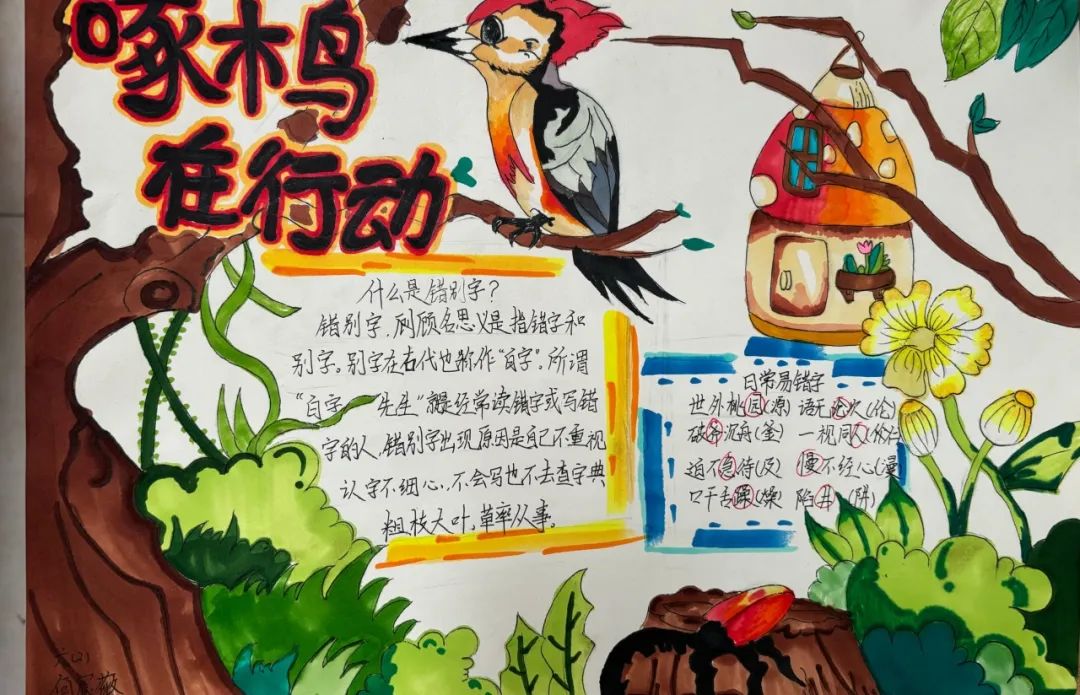 啄木鸟
在行动
什么是错别字？
错别字，则顾名思义是指错字和
别字。别字在古代也称作"白字"。所谓
"白字——先生"就是经常读错字或写错
字的人，错别字出现原因是自己不重视
认字不细心，不会写也不去查字典
粗枝大叶，草率从事。
日常易错字
世外桃园(源) 语无论次(伦)
破斧沉舟(釜) 一视同
迫不急待(及) 慢不经心(漫
口干舌躁(燥) 陷井(阱)